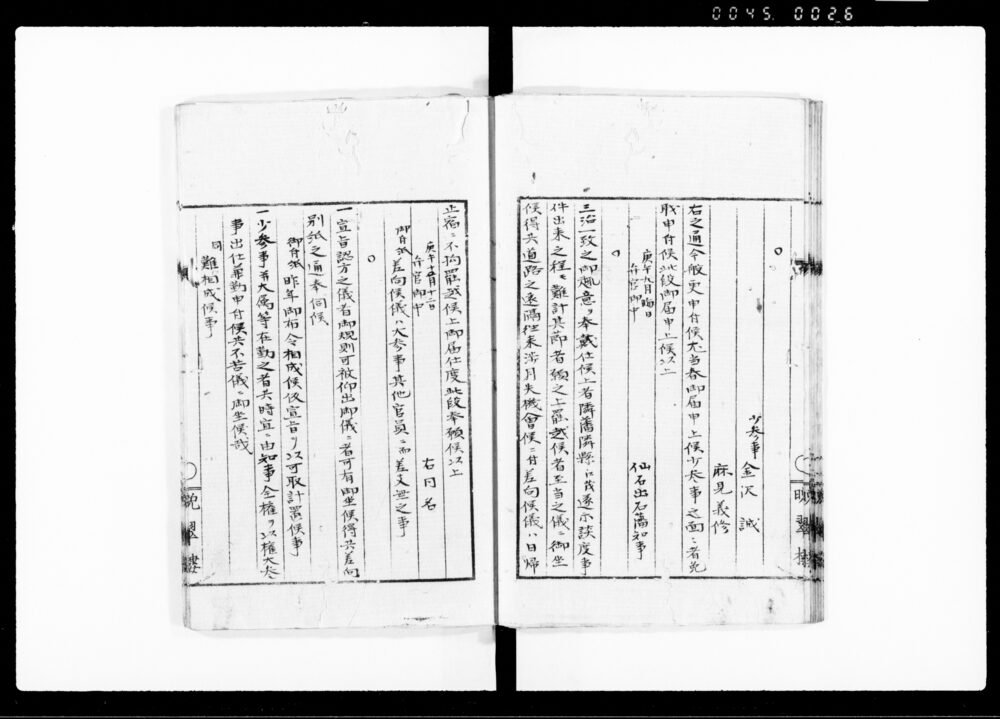 0045. 0026
○
少参事 金沢 誠
麻見義修
右之通今般更申付候尤当春御届申上候少参事之面ニ者免
職申付候此段御届申上候以上
庚午
弁官御中
仙石出石藩知事
○
三治一致之御趣意ヲ奉戴仕候上者隣藩隣縣江茂遂示談度事
件出来之程も難計其節者願之上罷越候者至当之儀ニ御坐
候得共道路之遠隔往来渉月失機會候ニ付差向候儀ハ日帰
止宿ニ不拘罷越候上御届仕度此段奉願候以上
弁官御中
右同名
御付紙 差向候儀ハ大参事其他官員ニ而差支無之事
○
一 宣旨認方之儀者御規則可被仰出御儀ニ者可有御坐候得共差向
別紙之通奉伺候
御付紙 昨年御布令相成候依宣旨ヲ以可取計置候事
一 少参事并大属等在勤之者共時宜ニ由知事全権ヲ以権大参
事出仕兼勤申付候共不苦儀ニ御坐候哉
同 難相成候事
晩翠樓
晩翠樓